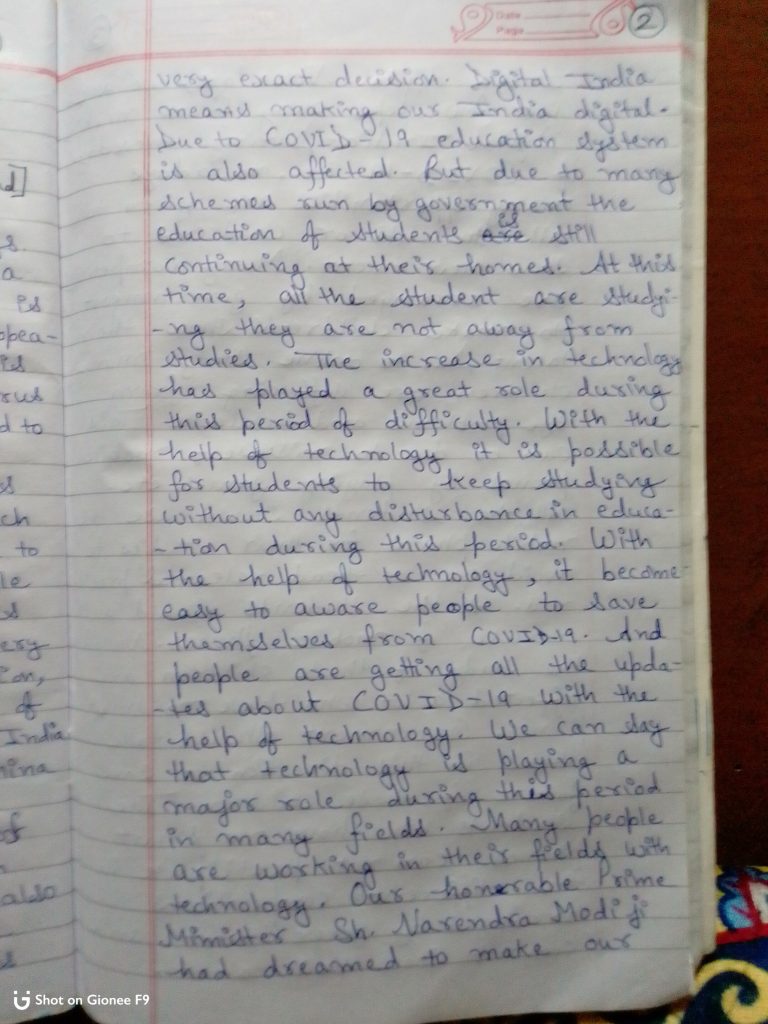 Date
Page
2
very exact decision. Digital India
means making our India digital.
Due to COVID-19 education system
is also affected. But due to many
schemes run by government the
is
education of students are still
continuing at their homes. At this
time, all the student are studyi-
-ng they are not away from
studies. The increase in technology
has played a great role during
this period of difficulty. With the
help of technology it is possible
for students to keep studying
without any disturbance in educa-
-tion during this period. With
the help of technology, it become
easy to aware people to save
themselves from COVID-19. And
people are getting all the upda-
-tes about COVID-19 with the
help of technology. We can say
that technology is playing a
major role during this period
in many fields. Many people
are working in their fields with
technology. Our honorable Prime
Minister Sh. Narendra Modi ji
had dreamed to make our
d]
s.
a
is
opea-
rus
d to
ch
to
le
ery
ion,
of
India
hina
of
also
Shot on Gionee F9